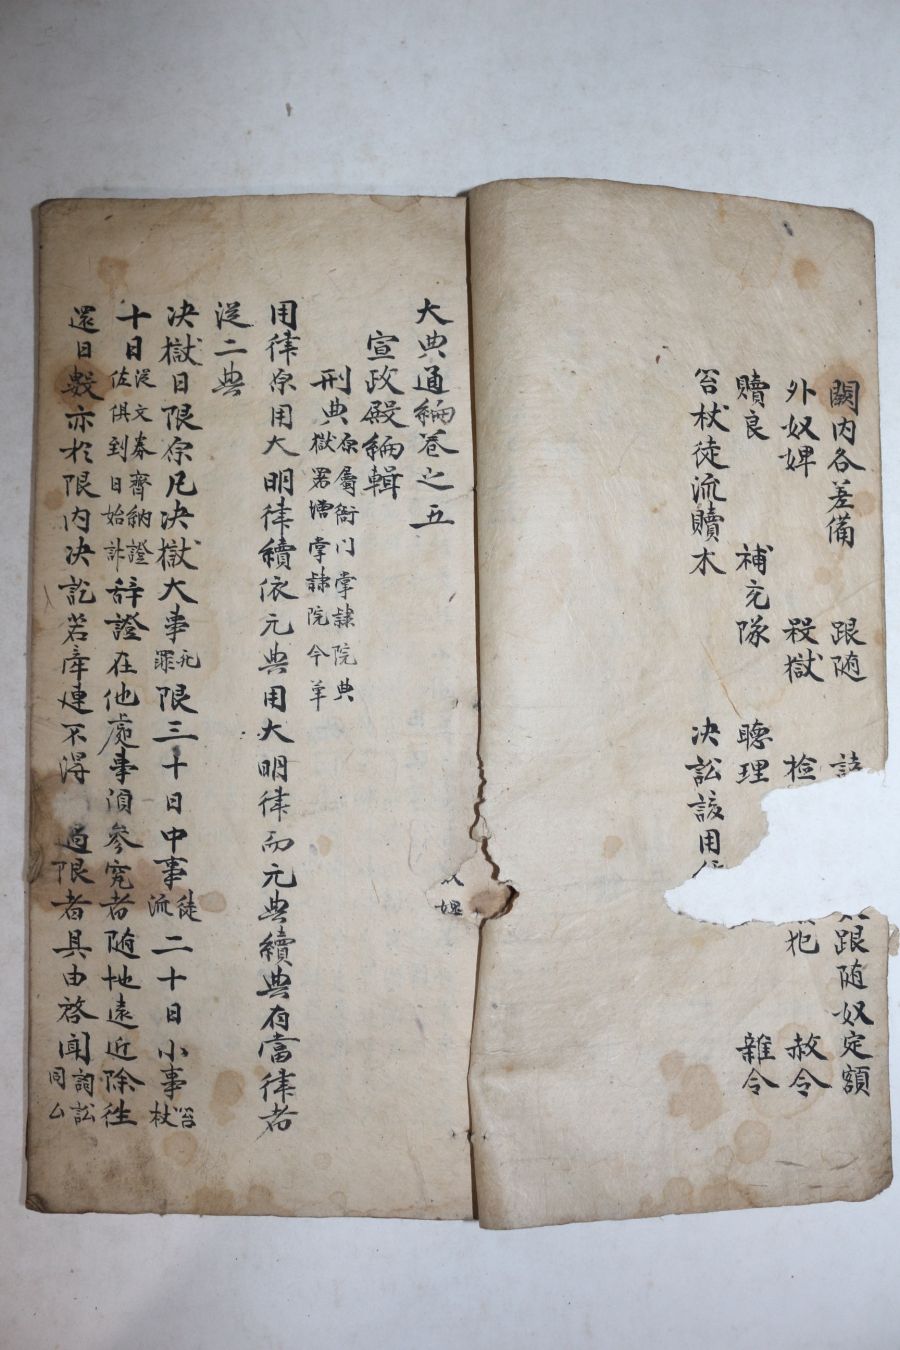 闕内各差備 跟随 跟随奴定額
外奴婢 殺獄 検 犯 赦令
贖良 補充隊 聴理 雜令
笞杖徒流贖木 决訟該用
大典通編卷之五
宣政殿編輯
刑典 原属衙门掌隷院典
獄署 掌隷院今革
用律原用大明律續依元典用大明律而元典續典有當律者
従二典
决獄日限原凡决獄大事 死
罪 限三十日中事 徒
流 二十日小事 笞
杖
十日 従文券齊納證
佐俱到日始計 辞證在他處事湏参究者随地遠近除徃
還日數亦於限内决訟若牽連不得 過限者具由啓聞 詞訟
同